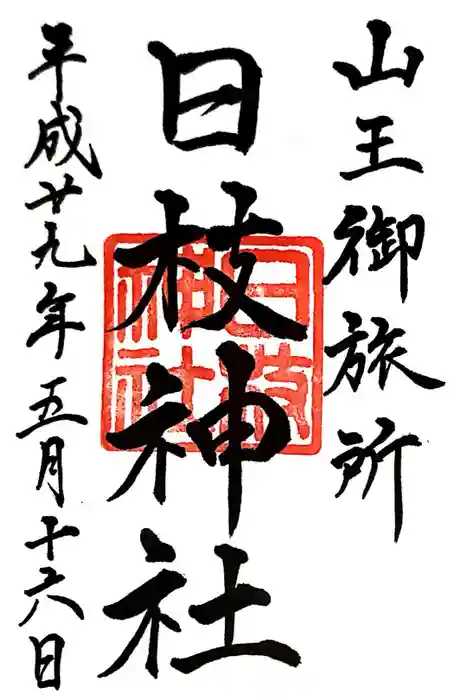 山王御旅所
日枝神社
日枝神社
平成廿九年五月十六日